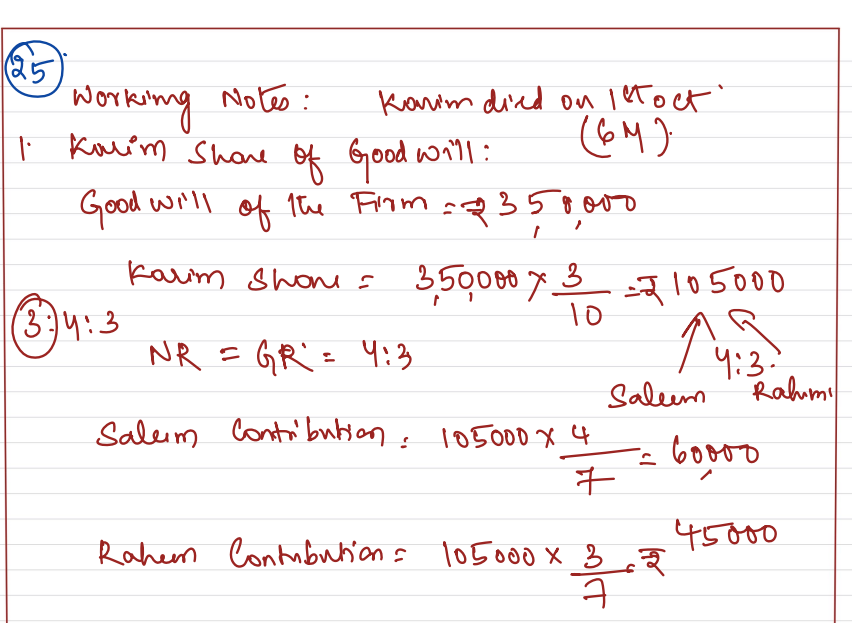 25
Working Notes: Karim died on 1st oct
(6M).
1. Karim Share of Goodwill:
Goodwill of the Firm = ₹ 3,50,000
Karim Share = 3,50,000 × 3/10 = ₹ 105000
3:4:3
NR = GR = 4:3
4:3.
Saleem Rahim
Saleem Contribution = 105000 × 4/7 = 60,000
Raheem Contribution = 105000 × 3/7 = ₹ 45000